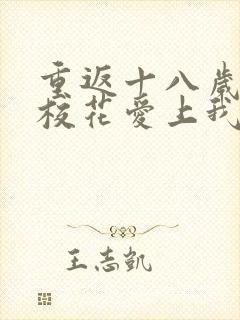 重返十八歲
校花愛上我
王志凱